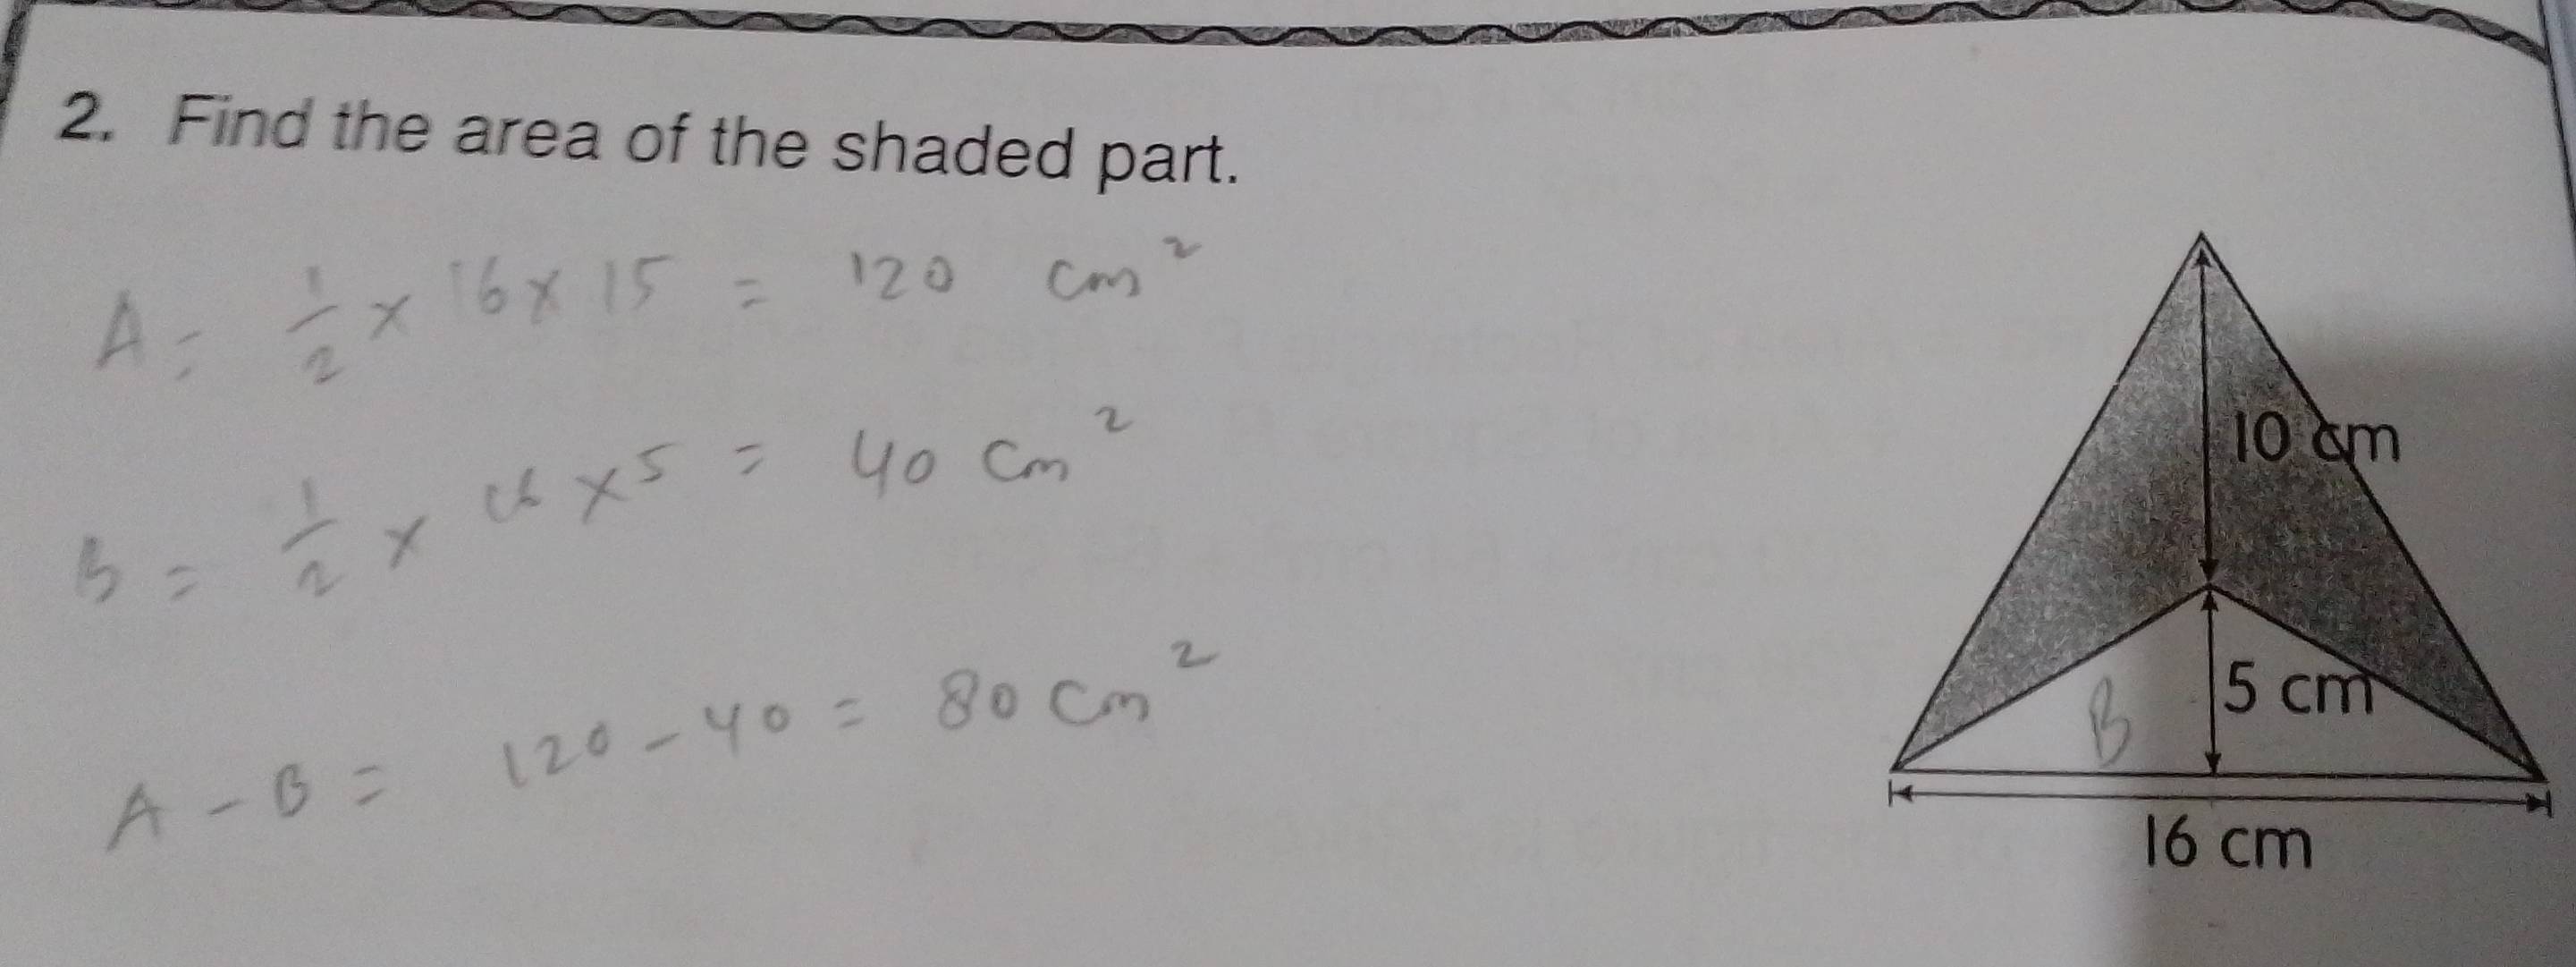 2. Find the area of the shaded part.
A = 1/2 × 16 × 15 = 120 cm²
B = 1/2 × 16 × 5 = 40 cm²
A - B = 120 - 40 = 80 cm²
10 cm
5 cm
B
16 cm